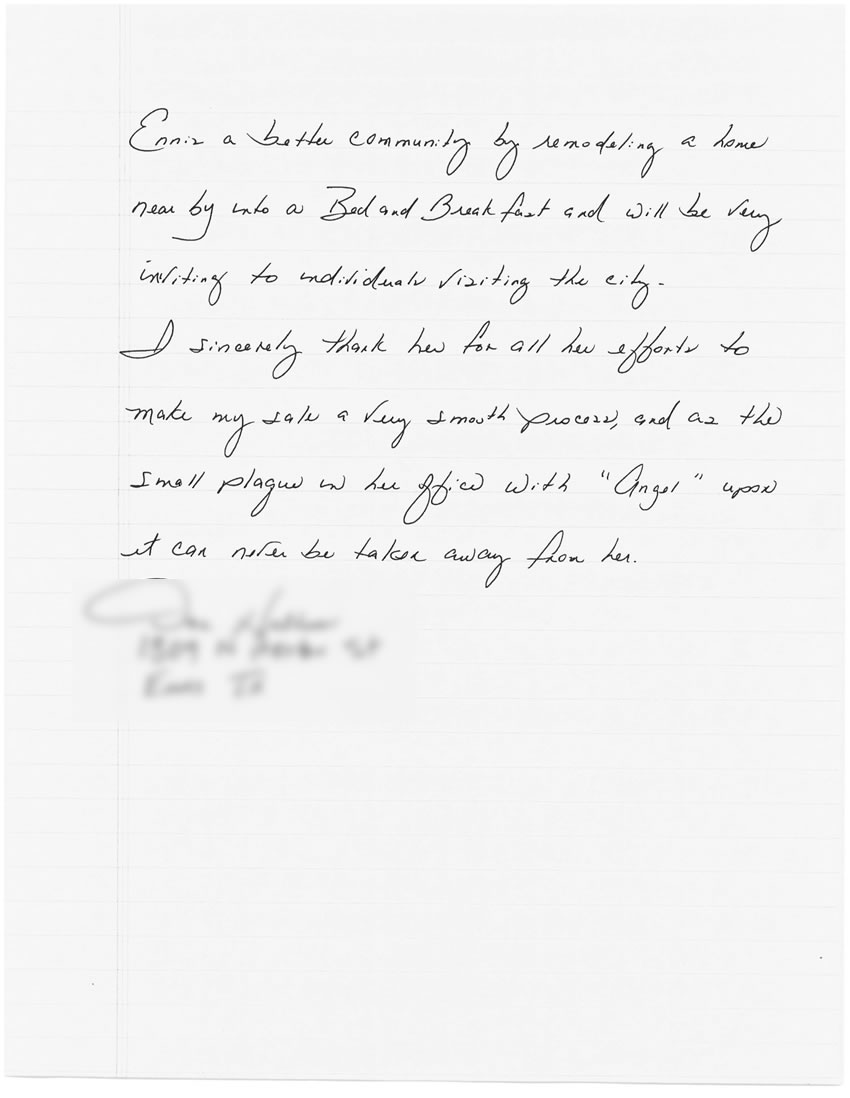 Ennis a better community by remodeling a home
near by into a Bed and Breakfast and will be very
inviting to individuals visiting the city.
I sincerely thank her for all her efforts to
make my sale a very smooth process, and as the
small plaque in her office with "Angel" upon
it can never be taken away from her.